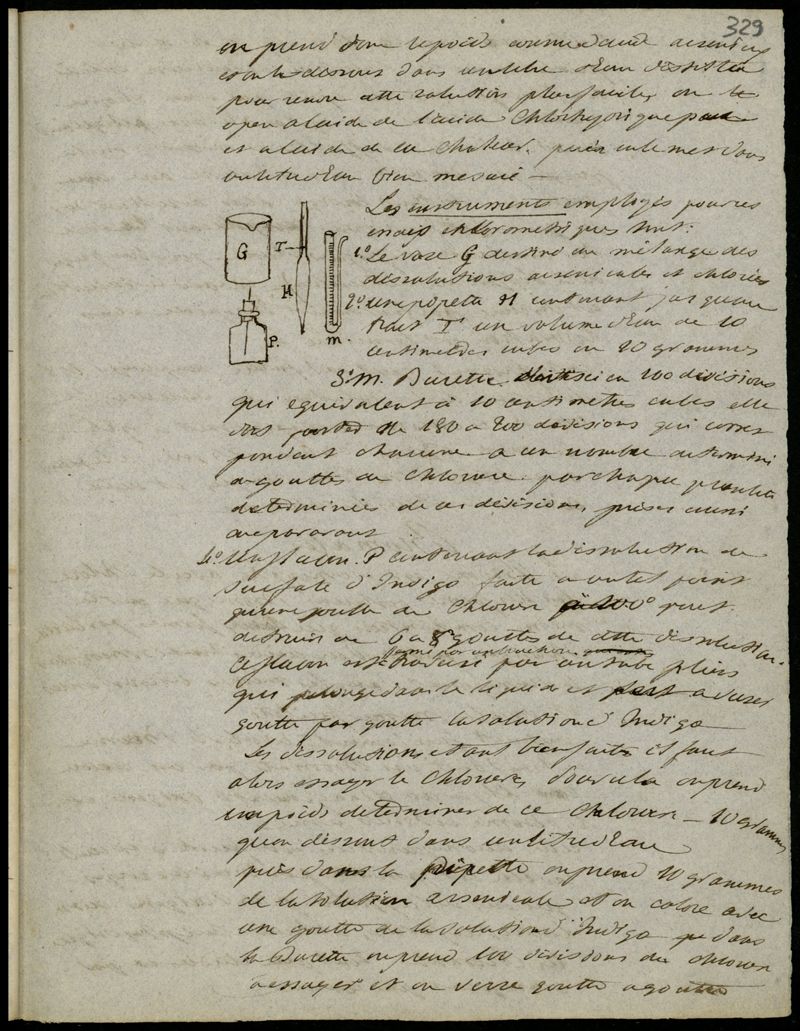 329
on prend donc le poids connu d'acide arsenieux
et on le dissous dans un litre d'Eau distillée
pour rendre cette solution plus facile, on le
opere a l'aide de l'acide Chlorhydrique pur
et a l'aide de la Chaleur. puis on le met dans
un litre d'Eau bien mesuré —
Les instruments employés pour ces
essais chlorometriques sont:
1.º Le vase G destiné au mélange des
dissolutions arsenicales et chlorées
2.º une pipette H contenant jusqu'au
trait T un volume d'Eau de 10
centimetres cubes ou 10 grammes
G
T
H
P.
m.
3º. M. Burette divisé en 100 divisions
qui equivalent à 10 centimetres cubes elle
doit porter de 180 a 200 divisions qui corres
pondent chacune a un nombre determiné
de gouttes de Chlorure. par chaque
determinées de ces divisions, prises aussi
auparavant
4.º Un flacon. P contenant la dissolution de
sulfate d'Indigo faite a un tel point
qu'une goutte de Chlorure à 100º peut
detruire de 6 a 8 gouttes de cette dissolution.
fermé par un bouchon
Ce flacon est traversé par un tube
qui plonge dans le liquide et sert a verser
goutte par goutte la solution d'Indigo
Les dissolutions etant bien faites il faut
alors essayer le Chlorure, pour cela on prend
un poids determiner de ce Chlorure — 10 grammes
qu'on dissout dans un litre d'Eau
puis dans la pipette on prend 10 grammes
de la solution arsenicale et on colore avec
une goutte de la solution d'Indigo dans
la Burette on prend 100 divisions du chlorure
a essayer et on verse goutte a goutte